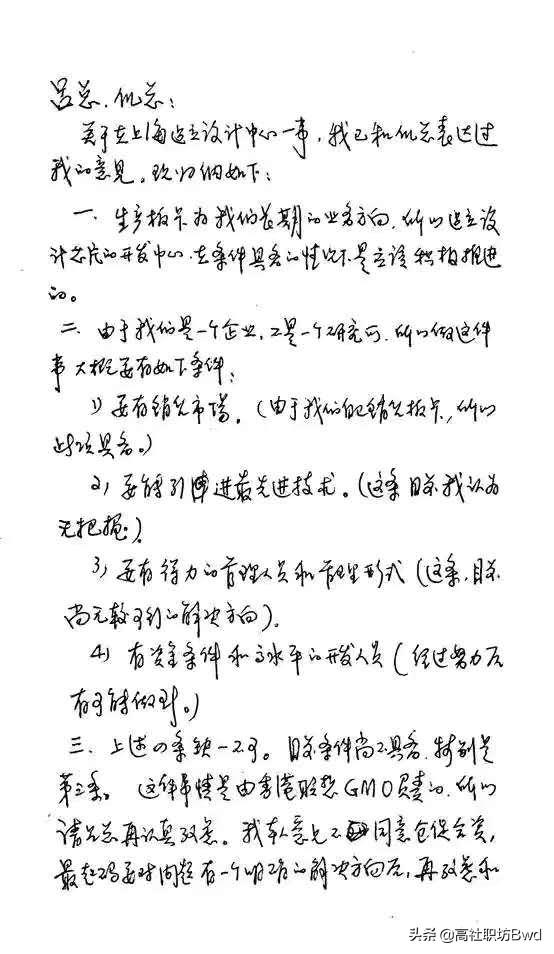 吕总、倪总：
关于在上海建立设计中心一事，我已和倪总表达过
我的意见。现归纳如下：
一、生产板卡为我们长期的业务方向，所以建立设
计芯片的开发中心，在条件具备的情况下是应该积极推进
的。
二、由于我们是一个企业，不是一个研究所，所以做这件
事大概要有如下条件：
1) 要有销售市场。（由于我们自己销售板卡，所以
此项具备。）
2) 要能引进最先进技术。（这条目前我认为
无把握）
3) 要有得力的管理人员和管理形式（这条，目前
尚无较可行的解决方向）。
4) 有资金条件和高水平的开发人员（经过努力后
有可能做到。）
三、上述四条缺一不可。目前条件尚不具备，特别是
第三条。这件事情是由香港联想GMO负责的，所以
请吕总再认真考虑。我本人意见不同意仓促合资，
最起码要对问题有一个明确的解决方向后，再考虑和
头条 @高社职坊Bwd